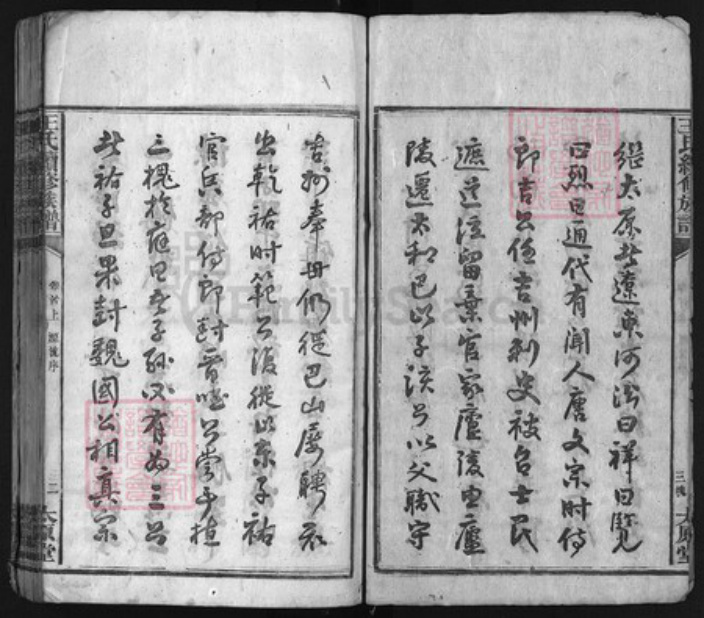 继太原者遼東河汾曰祥曰覽
曰烈曰通代有聞人唐文宗时侍
郎吉公任吉州刺史被召士民
遮道泣留棄官家廬陵由廬
陵遷太和已以子該公以父職守
吉州奉母仍從巴山屡聘不
出乾祐时範公復從以京子祐
官兵部侍郎封晋國公嘗手植
三槐於庭曰吾子孫必有為三公
者祐子旦果封魏國公相真宗
王氏續修族譜
卷首上 源流序
二
太原堂
王氏續修族譜
三槐
太原堂
FamilySearch